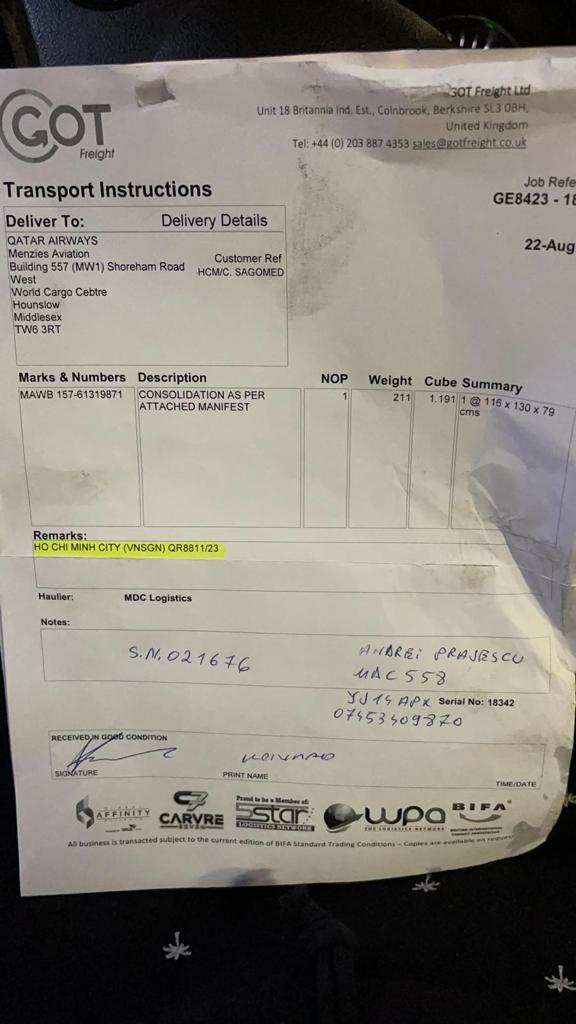 GOT
Freight
GOT Freight Ltd
Unit 18 Britannia Ind. Est., Colnbrook, Berkshire SL3 0BH,
United Kingdom
Tel: +44 (0) 203 887 4353 sales@gotfreight.co.uk
Transport Instructions
Job Refe
GE8423 - 18
22-Aug
Deliver To: Delivery Details
QATAR AIRWAYS
Menzies Aviation
Building 557 (MW1) Shoreham Road
West
World Cargo Cebtre
Hounslow
Middlesex
TW6 3RT
Customer Ref
HCM/C. SAGOMED
Marks & Numbers Description NOP Weight Cube Summary
MAWB 157-61319871 CONSOLIDATION AS PER 1 211 1.191 1 @ 116 x 130 x 79
ATTACHED MANIFEST cms
Remarks:
HO CHI MINH CITY (VNSGN) QR8811/23
Haulier: MDC Logistics
Notes:
S.N.021676
ANDREI PRAJESCU
MAC 558
YJ14 APX Serial No: 18342
07453409870
RECEIVED IN GOOD CONDITION
SIGNATURE
PRINT NAME
TIME/DATE
AFFINITY
CARVRE
SEVEN
Proud to be a Member of:
5star
LOGISTICS NETWORK
wpa
THE LOGISTICS NETWORK
BIFA
All business is transacted subject to the current edition of BIFA Standard Trading Conditions – Copies are available on request